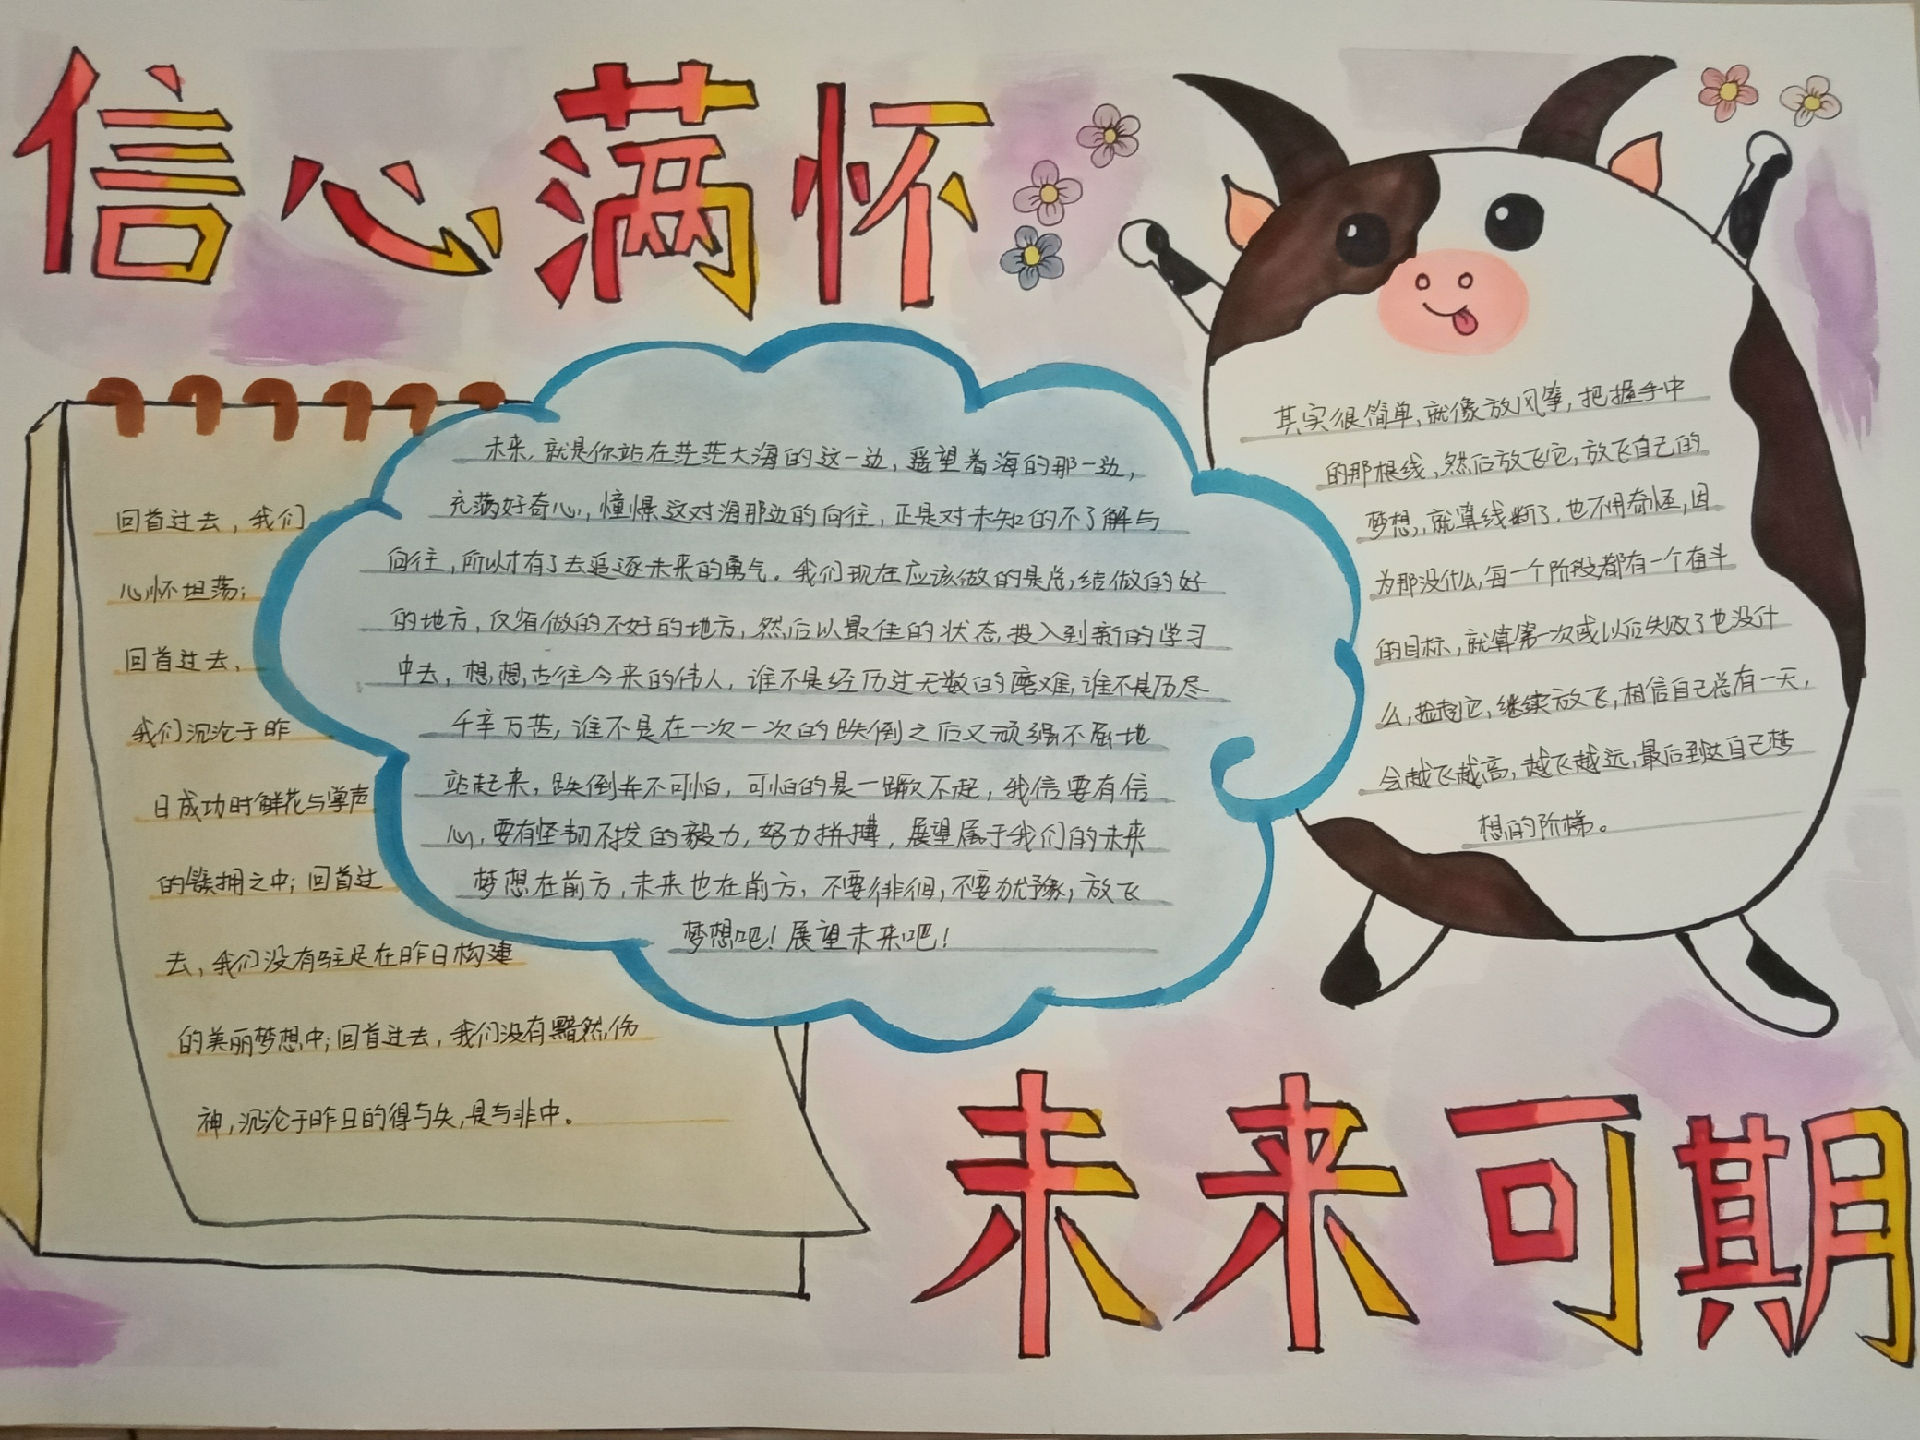 信心满怀
回首过去，我们
心怀坦荡；
回首过去，
我们沉沦于昨
日成功时鲜花与掌声
的簇拥之中；回首过
去，我们没有驻足在昨日构建
的美丽梦想中；回首过去，我们没有黯然伤
神，沉沦于昨日的得与失，是与非中。
未来，就是你站在茫茫大海的这一边，遥望着海的那一边，
充满好奇心，憧憬这对海那边的向往，正是对未知的不了解与
向往，所以才有了去追逐未来的勇气。我们现在应该做的是总结做的好
的地方，仅有做的不好的地方，然后以最佳的状态投入到新的学习
中去，想想古往今来的伟人，谁不是经历过无数的磨难，谁不是历尽
千辛万苦，谁不是在一次一次的跌倒之后又顽强不屈地
站起来，跌倒并不可怕，可怕的是一蹶不起，我信要有信
心，要有坚韧不拔的毅力，努力拼搏，展望属于我们的未来
梦想在前方，未来也在前方，不要徘徊，不要犹豫，放飞
梦想吧！展望未来吧！
其实很简单，就像放风筝，把握手中
的那根线，然后放飞它，放飞自己的
梦想，就算线断了，也不用奇怪，因
为那没什么，每一个阶段都有一个奋斗
的目标，就算第一次或以后失败了也没什
么，捡起它，继续放飞，相信自己总有一天，
会越飞越高，越飞越远，最后到达自己梦
想的阶梯。
未来可期